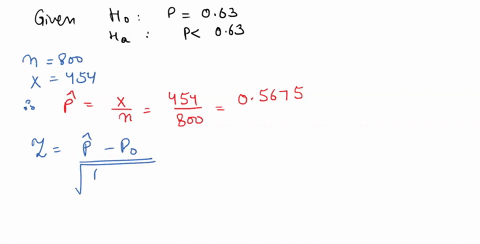 Given H₀ : P = 0.63
Hₐ : P < 0.63
n = 800
x = 454
∴ P̂ = x/n = 454/800 = 0.5675
Z = P̂ - P₀ / √(